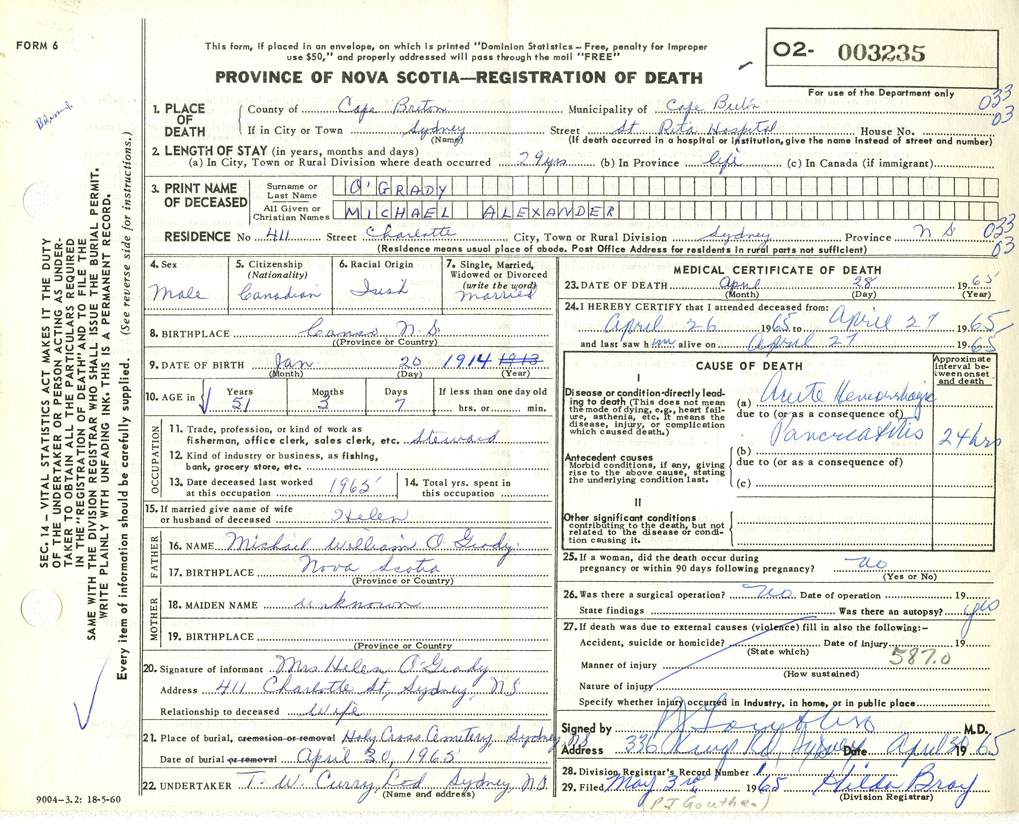 FORM 6
This form, if placed in an envelope, on which is printed "Dominion Statistics – Free, penalty for improper
use $50," and properly addressed will pass through the mail "FREE"
PROVINCE OF NOVA SCOTIA—REGISTRATION OF DEATH
02- 003235
For use of the Department only
033
03
SEC. 14 – VITAL STATISTICS ACT MAKES IT THE DUTY
OF THE UNDERTAKER OR PERSON ACTING AS UNDER-
TAKER TO OBTAIN ALL THE PARTICULARS REQUIRED
IN THE "REGISTRATION OF DEATH" AND TO FILE THE
SAME WITH THE DIVISION REGISTRAR WHO SHALL ISSUE THE BURIAL PERMIT.
WRITE PLAINLY WITH UNFADING INK. THIS IS A PERMANENT RECORD.
Every item of information should be carefully supplied. (See reverse side for instructions.)
1. PLACE OF DEATH
County of Cape Breton Municipality of Cape Breton
If in City or Town Sydney Street St. Rita Hospital House No.
(Name) (If death occurred in a hospital or institution, give the name instead of street and number)
2. LENGTH OF STAY (in years, months and days)
(a) In City, Town or Rural Division where death occurred 29 yrs (b) In Province life (c) In Canada (if immigrant)
3. PRINT NAME OF DECEASED
Surname or Last Name O'GRADY
All Given or Christian Names MICHAEL ALEXANDER
RESIDENCE No 411 Street Charlotte City, Town or Rural Division Sydney Province N S
033
03
(Residence means usual place of abode. Post Office Address for residents in rural parts not sufficient)
4. Sex Male
5. Citizenship (Nationality) Canadian
6. Racial Origin Irish
7. Single, Married, Widowed or Divorced (write the word) Married
8. BIRTHPLACE Canso N.S.
(Province or Country)
9. DATE OF BIRTH Jan 20 1914 1913
(Month) (Day) (Year)
10. AGE in Years 51 Months 3 Days 7 If less than one day old hrs. or min.
OCCUPATION
11. Trade, profession, or kind of work as
fisherman, office clerk, sales clerk, etc. Steward
12. Kind of industry or business, as fishing,
bank, grocery store, etc.
13. Date deceased last worked at this occupation 1965
14. Total yrs. spent in this occupation
15. If married give name of wife
or husband of deceased Helen
FATHER
16. NAME Michail William O'Grady
17. BIRTHPLACE Nova Scotia
(Province or Country)
MOTHER
18. MAIDEN NAME unknown
19. BIRTHPLACE
(Province or Country)
20. Signature of informant Mrs Helen O'Grady
Address 411 Charlotte St, Sydney, N S
Relationship to deceased Wife
21. Place of burial, cremation or removal Holy Cross Cemetery Sydney NS
Date of burial or removal April 30, 1965
22. UNDERTAKER T. W. Curry, Ltd Sydney N.S.
(Name and address)
9004–3.2: 18-5-60
MEDICAL CERTIFICATE OF DEATH
23. DATE OF DEATH April 28 1965
(Month) (Day) (Year)
24. I HEREBY CERTIFY that I attended deceased from:
April 26 1965 to April 27 1965
and last saw him alive on April 27 1965
CAUSE OF DEATH
Approximate interval between onset and death
I
Disease or condition directly leading to death (This does not mean the mode of dying, e.g., heart failure, asthenia, etc. It means the disease, injury, or complication which caused death.)
(a) Acute Hemorrhagic
due to (or as a consequence of)
Pancreatitis 24 hrs
Antecedent causes
Morbid conditions, if any, giving rise to the above cause, stating the underlying condition last.
(b)
due to (or as a consequence of)
(c)
II
Other significant conditions
contributing to the death, but not related to the disease or condition causing it.
25. If a woman, did the death occur during
pregnancy or within 90 days following pregnancy? no
(Yes or No)
26. Was there a surgical operation? No. Date of operation 19
State findings Was there an autopsy? yes
27. If death was due to external causes (violence) fill in also the following:–
Accident, suicide or homicide? Date of injury 19
(State which)
587.0
Manner of injury
(How sustained)
Nature of injury
Specify whether injury occurred in Industry, in home, or in public place
Signed by M.D.
Address 336 Kings Rd, Sydney Date April 30 1965
28. Division Registrar's Record Number
29. Filed May 3rd 1965 Hilda Bray
(Division Registrar)